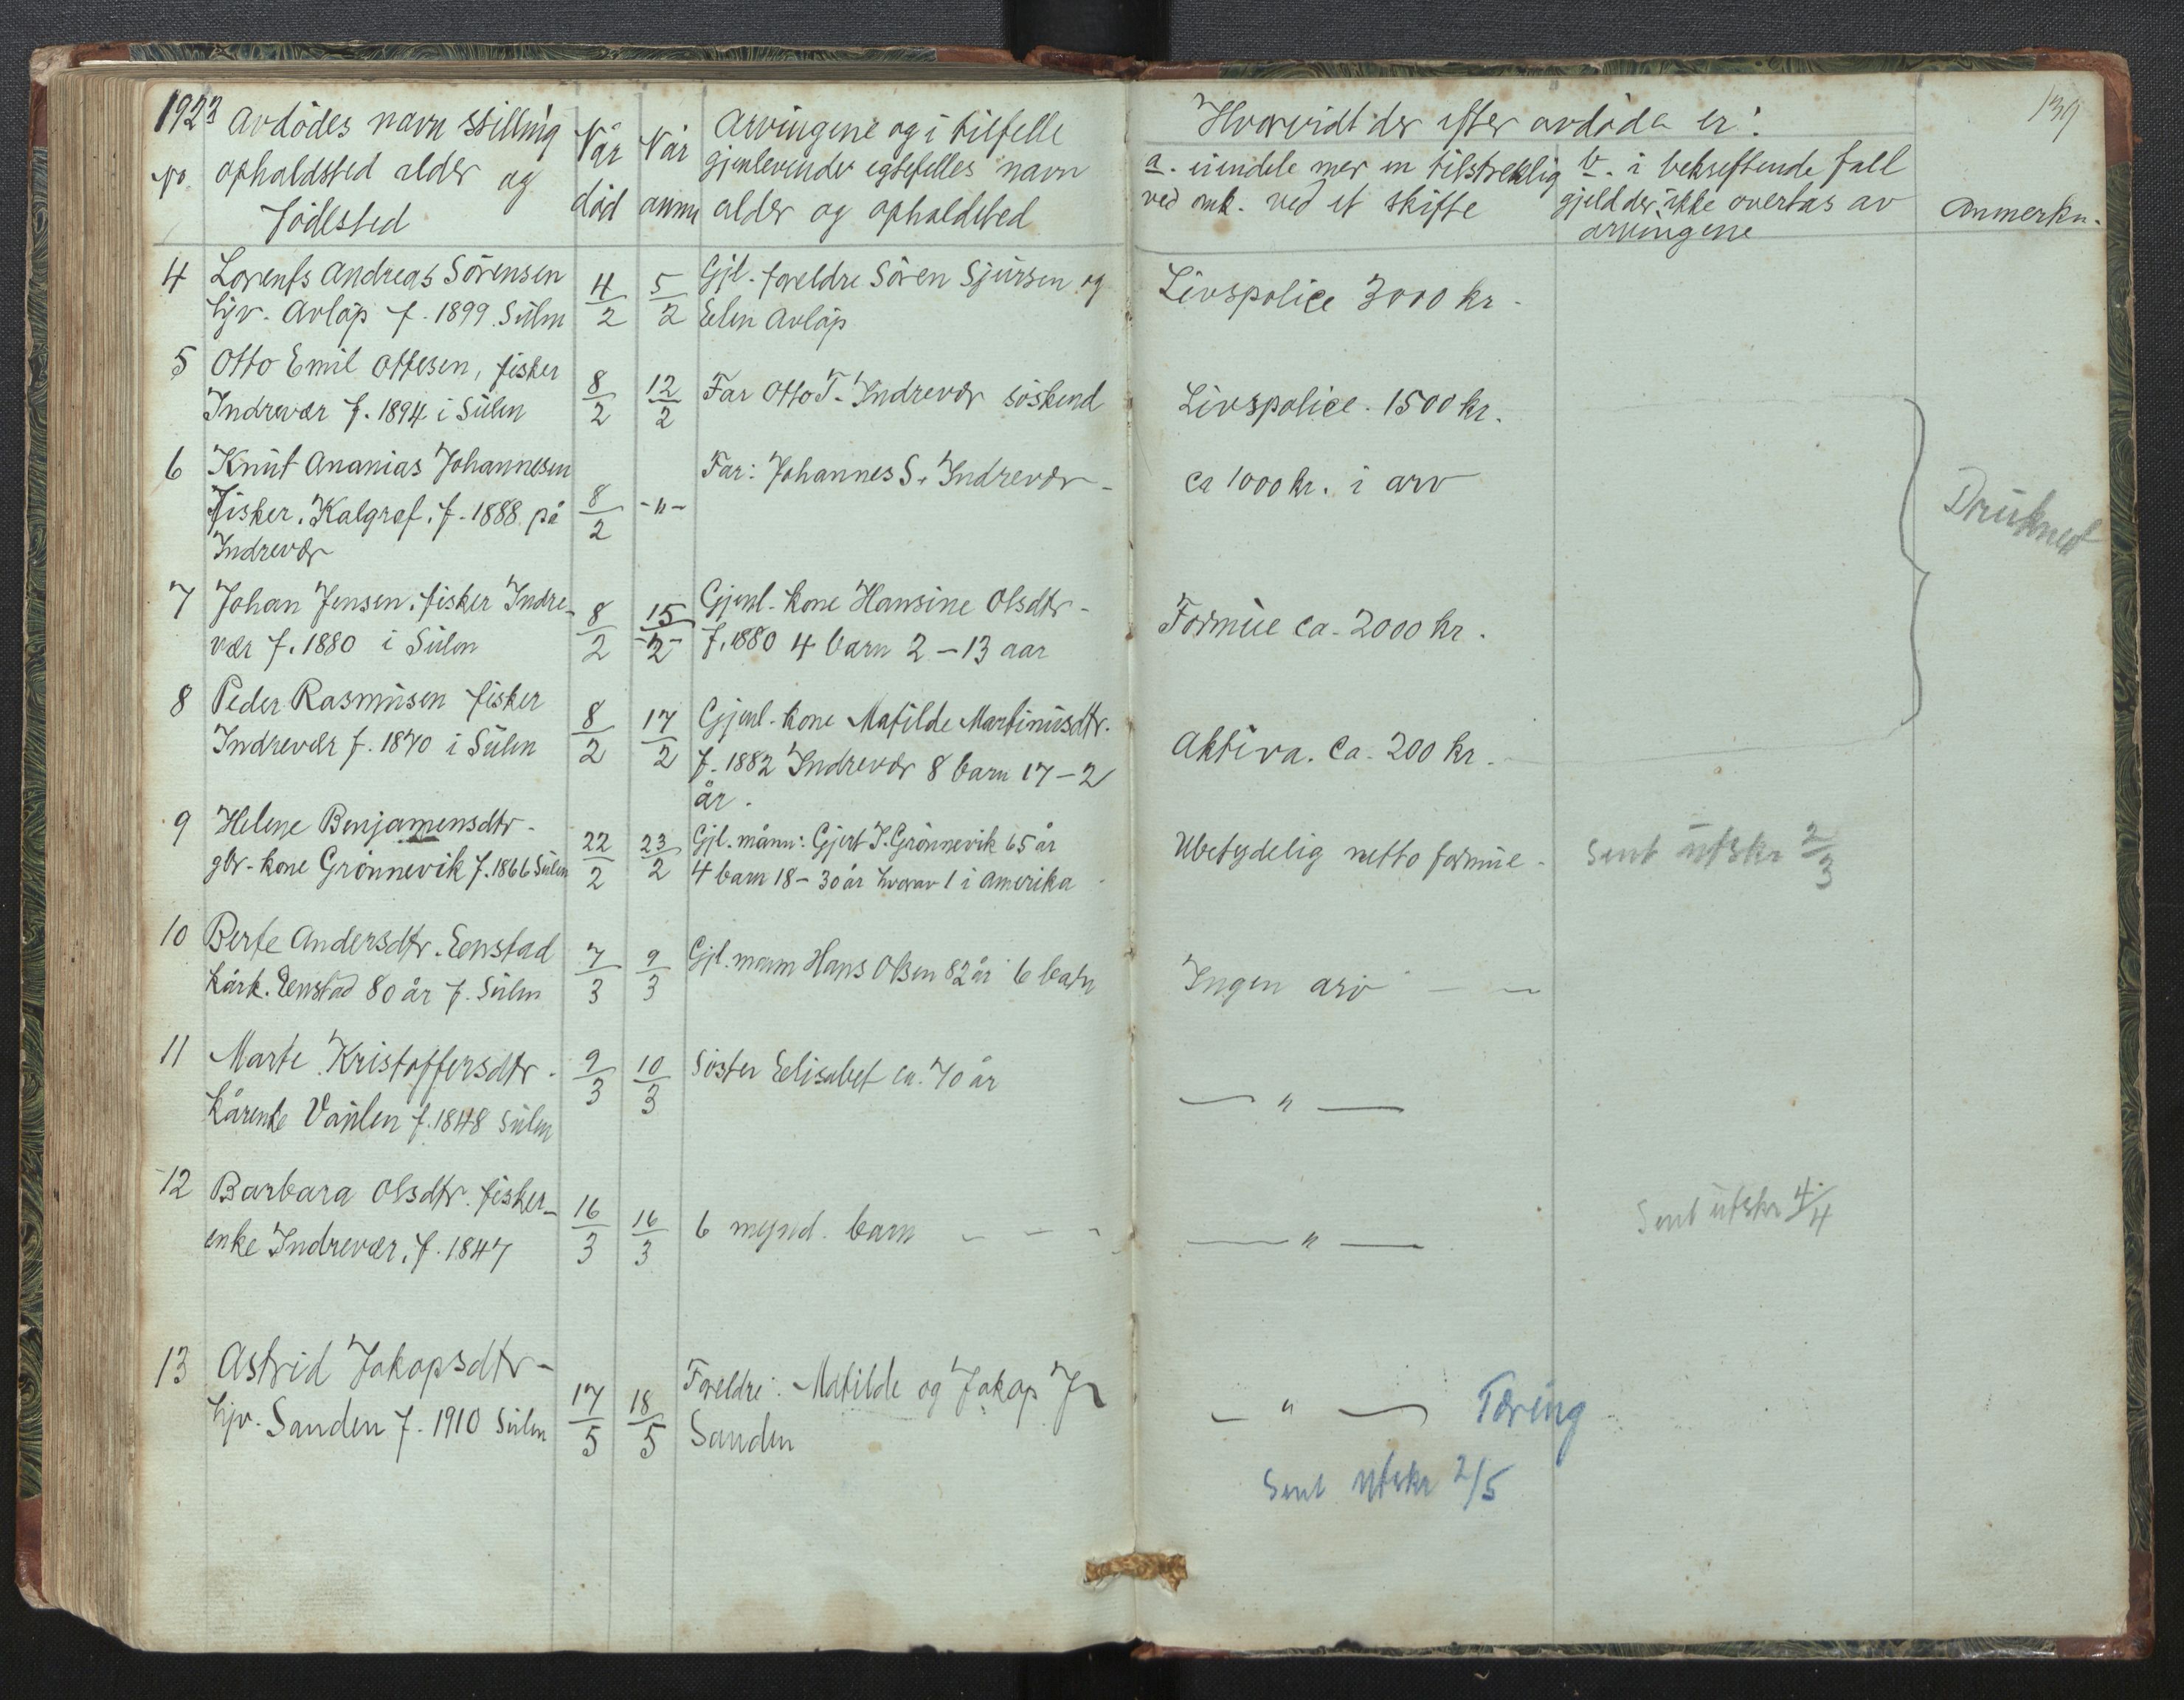 1923 Avdödes navn stilling
No. opholdsted alder og
födested
Når
död
Når
anm
Arvingene og i tilfelle
gjenlevende egtefelles navn
alder og opholdsted
Hvorvidt der efter avdöde er:
a. eiendele mer en tilstreklig
ved omk. ved et skifte
b. i bekreftende fall
gjeld der ikke overtas av
arvingene
Anmerkn.
139
4 Lorents Andreas Sörensen
hjv. Avlöp f. 1899 Sulen
4/2
5/2
Gjl. foreldre Sören Sjursen og
Elen Avlöp
Livspolice 3000 kr.
5 Otto Emil Ottesen, fisker
Indrevær f. 1894 i Sulen
8/2
12/2
Far Otto T. Indrevær söskend
Livspolice. 1500 kr.
6 Knut Ananias Johannesen
Fisker. Kalgraf. f. 1888. på
Indrevær
8/2
-"-
Far: Johannes S. Indrevær -
ca 1000 kr. i arv
Druknet
7 Johan Jensen. fisker Indre-
vær f. 1880 i Sulen
8/2
15/2
Gjenl. kone Hansine Olsdtr.
f. 1880 4 barn 2 - 13 aar
Formue ca. 2000 kr.
8 Peder Rasmusen fisker
Indrevær f. 1870 i Sulen
8/2
17/2
Gjenl. kone Matilde Martinusdtr.
f. 1882 Indrevær 8 barn 17 - 2
år.
Aktiva. ca. 200 kr.
9 Helene Benjamensdtr.
gbr. kone Grönnevik f. 1866 Sulen
22/2
23/2
Gjl. mann: Gjert J. Grönnevik 65 år
4 barn 18 - 30 år hvorav 1 i Amerika
Ubetydelig netto formue -
Sent utskr 2/3
10 Berte Andersdtr. Eenstad
kårk. Eenstad 80 år f. Sulen
7/3
9/3
Gjl. mann Hans Olsen 82 år 6 barn
Ingen arv - -
11 Marte Kristoffersdtr.
kårenke f. 1848 Sulen
9/3
10/3
Söster Elisabet ca. 70 år
- " -
12 Barbara Olsdtr. fisker-
enke Indrevær. f. 1847
16/3
16/3
6 mynd. barn - - -
- " -
Sent utskr 4/4
13 Astrid Jakopsdtr -
hjv. Sanden f. 1910 Sulen
17/5
18/5
Foreldre: Matilde og Jakop J
Sanden
- " - Tæring
Sent utskr 2/5